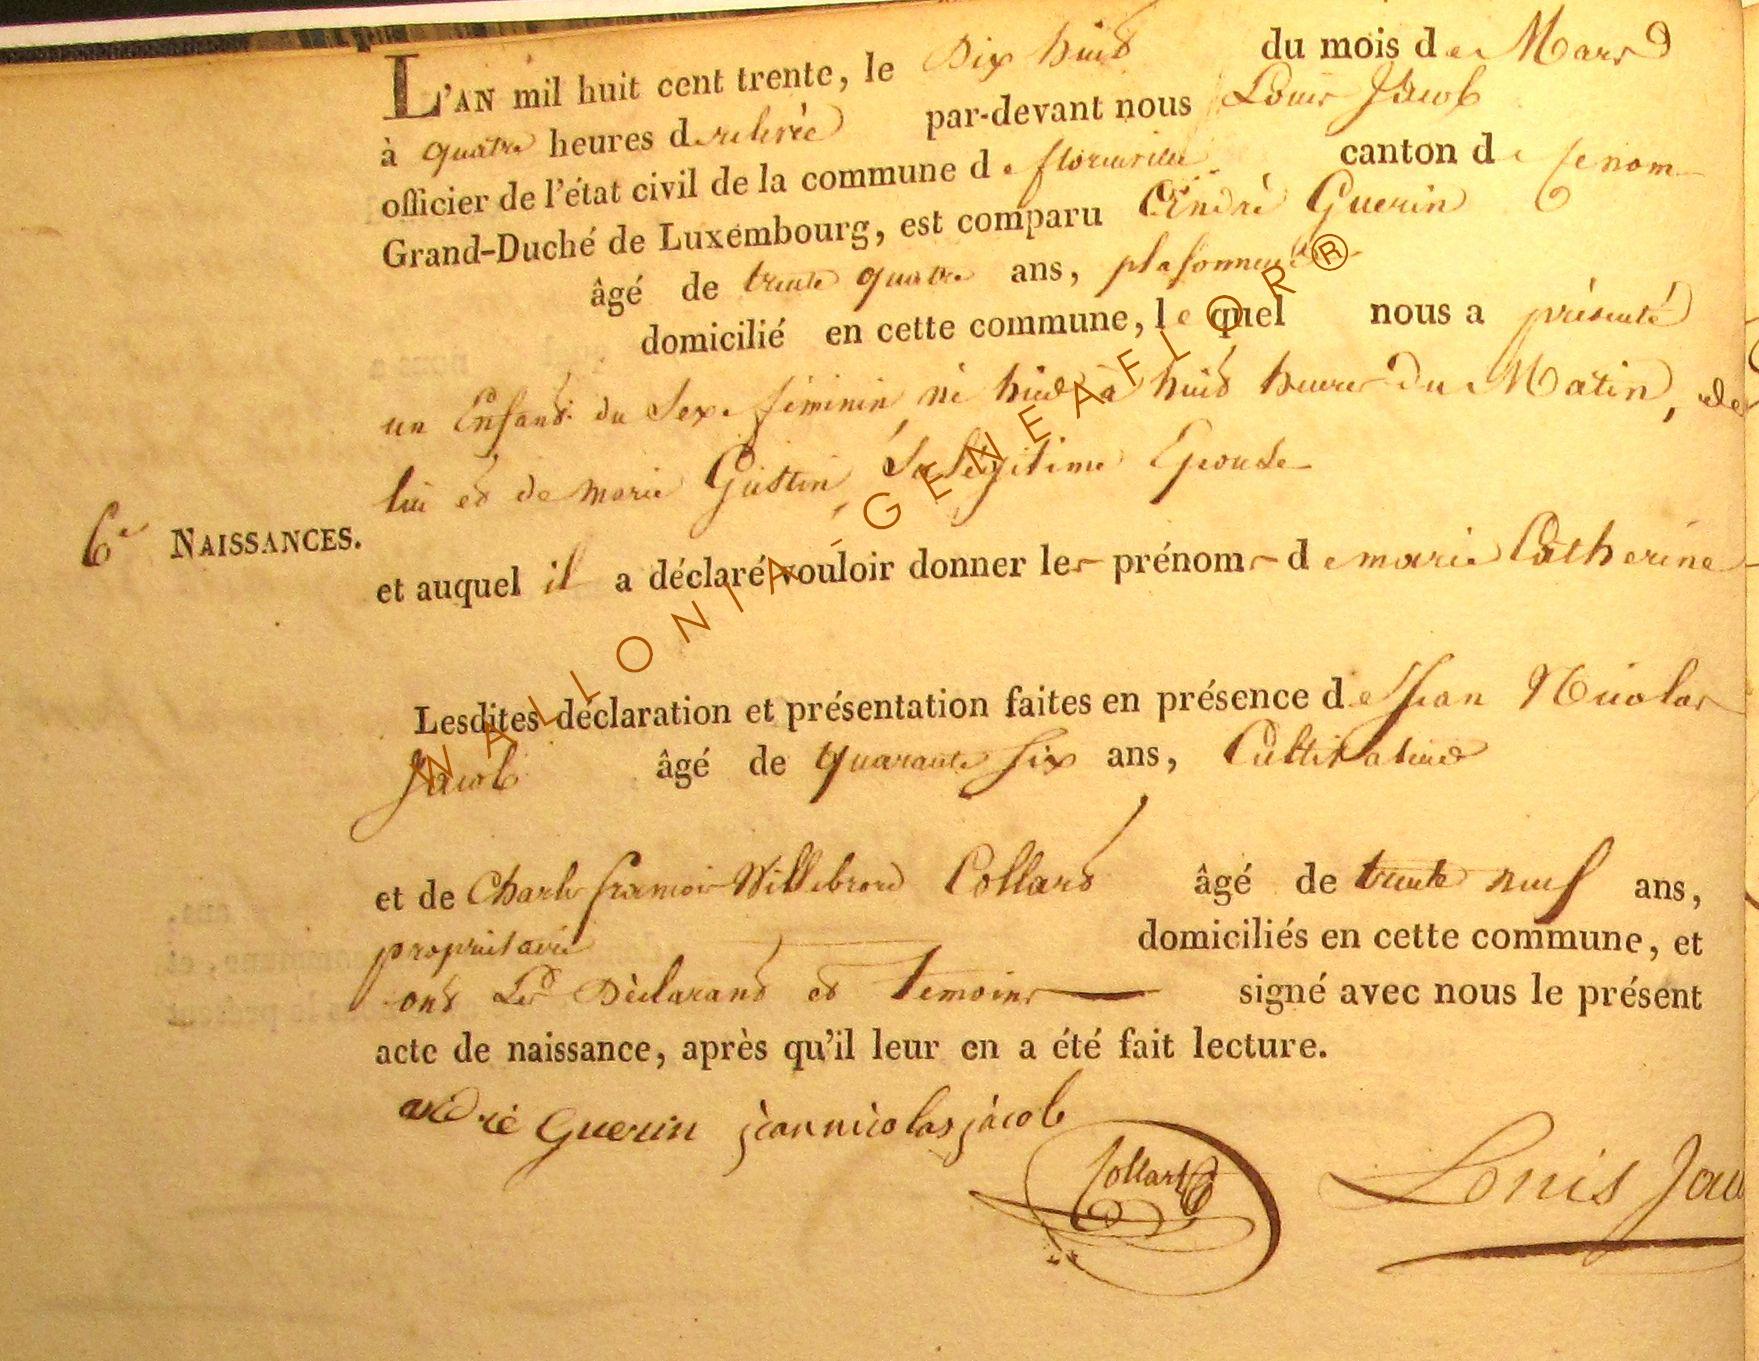 L'AN mil huit cent trente, le Dix huit du mois de Mars
à quatre heures de relevée par-devant nous Louis Jacob
officier de l'état civil de la commune de florenville canton de ce nom
Grand-Duché de Luxembourg, est comparu André Guerin
âgé de trente quatre ans, plafonneur
domicilié en cette commune, le quel nous a présenté
un Enfant du Sexe féminin né hier à huit heures du Matin, de
lui et de marie Gustin, Sa légitime Epouse
6e NAISSANCES.
et auquel il a déclaré vouloir donner les prénoms de marie Catherine
Lesdites déclaration et présentation faites en présence de Jean Nicolas
Jacob âgé de quarante six ans, Cultivateur
et de Charles françois Willebrord Collard âgé de trente neuf ans,
propriétaire domiciliés en cette commune, et
ont Les Déclarant et Temoins signé avec nous le présent
acte de naissance, après qu'il leur en a été fait lecture.
andré Guerin jean nicolas jacob
Collart
Louis Jac
WALLONIA - GENEAFLOR ®